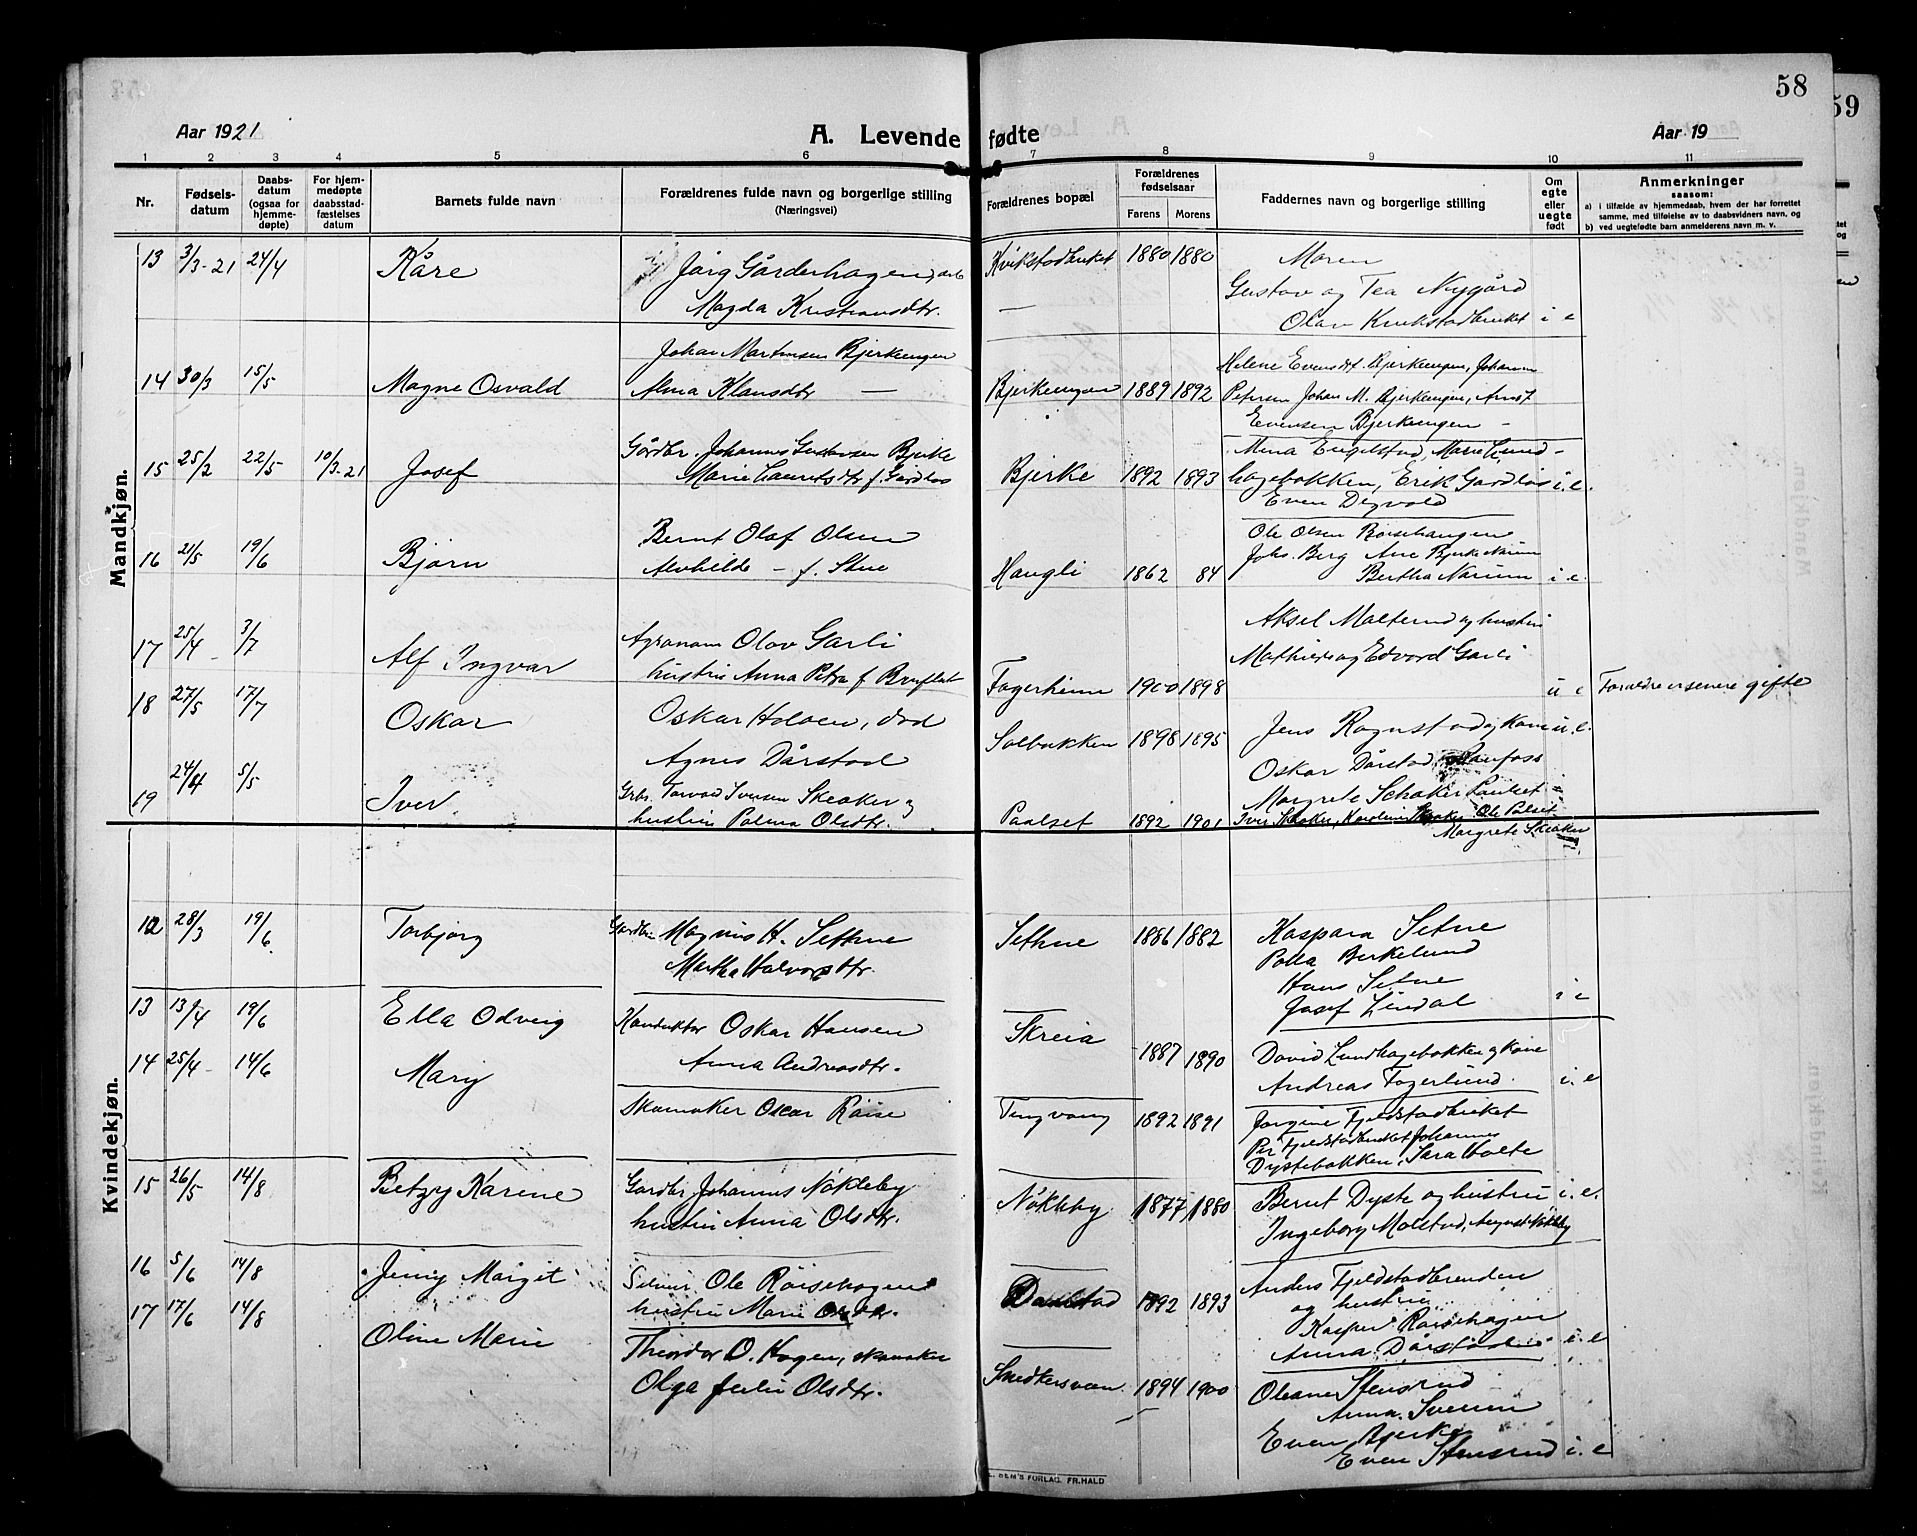 58
59
Aar 1921
A. Levende fødte
Aar 19
1 2 3 4 5 6 7 8 9 10 11
Nr.
Fødsels-
datum
Daabs-
datum
(ogsaa for
hjemme-
døpte)
For hjem-
medøpte
daabsstad-
fæstelses
datum
Barnets fulde navn
Forældrenes fulde navn og borgerlige stilling
(Næringsvei)
Forældrenes bopæl
Forældrenes
fødselsaar
Farens Morens
Faddernes navn og borgerlige stilling
Om
egte
eller
uegte
født
Anmerkninger
saasom:
a) i tilfælde av hjemmedaab, hvem der har forrettet
samme, med tilføielse av to daabsvidners navn, og
b) ved uegtefødte barn anmelderens navn m. v.
Mandkjøn.
13 3/3-21 24/4 Kåre Jørg Gårderhagen, arb Kvikstadbruket 1880 1880 Moren
Gustav og Tea Nygård
Magda Kristiansdtr. — Olav Kvikstadbruket i e
Johan Martinsen Bjerkengen Helene Evensdt. Bjerkengen, Johannes
14 30/3 15/5 Magne Osvald Alma Klausdtr — Bjerkengen 1889 1892 Petersen Johan M. Bjerkengen, Arnst
Evensen Bjerkengen -
Gårdbr. Johannes Gustavsen Bjerke Mina Engelstad, Marie Lund-
15 25/2 22/5 10/3-21 Josef Marie Lauritsdtr f. Gårdløs Bjerke 1892 1893 hagebakken, Erik Gårdløs i. e.
Even Degvold
Bernt Olaf Olsen Ole Olsen Roisehangen
Johs. Berg Ane Bjerke Narum
16 21/5 19/6 Bjørn Alvhilde - f. Skue Haugli 1862 84 Bertha Narum i e.
Agronom Olav Garli Aksel Malterud og hustru
17 25/4 - 3/7 Alf Ingvar hustru Anna Petra f Bruflat Mathilde og Edvard Garli
Fagerheim 1900 1898 u e Forældre er senere gifte
18 27/5 17/7 Oskar Oskar Holoen, død Solbakken 1898 1895 Jens Rognstad og Kone u. e.
Agnes Dårstad Oskar Dårstad Raufoss
Margrete Schaker Paulset
19 24/4 5/5 Iver Grbr. Torvald Iversen Skeaker og
hustru Palma Olsdtr. Paalset 1892 1901 Iver Skeaker, Karoline Skeaker Ole Palset
Margrete Skeaker
Kvindekjøn.
12 28/3 19/6. Torbjørg Gårdbr. Magnus H. Sethne Sethne 1886 1882 Kaspara Setne
Martha Halvorsdtr. Palla Berkelund
Hans Setne
Josef Lindal i e
13 13/4 19/6 Ella Odveig Konduktør Oskar Hansen Skreia
Anna Andreasdtr. 1887 1890 David Lundhagebakken og kone
Andreas Fagerlund. i. e
14 25/4- 14/6 Mary Skomaker Oscar Røise Tingvang 1892 1891 Jørgine Fjeldstadbruket
Per Fjeldstadbruket Johannes
Dystebakken, Sara Holte
15 26/5 14/8 Betzy Karine Gardbr Johannes Nökleby Nökleby 1877 1880 Bernt Dyste og hustru i. e.
hustru Anna Olsdtr. Ingeborg Molstad, August Nökleby
16 5/6 14/8 Jenny Margit Ole Röisehagen Daalstad 1892 1893 Anders Fjeldstadbrenden
hustru Marie og hustru
Kasper Roisehagen
Anna Dårstad i. e
17 17/6 14/8 Oline Marie Theordor O. Hagen, skomaker
Olga Julie Olsdtr. Snedkersveen 1894 1900 Oleane Stensrud
Anna Sveum
Even Bjerke
Even Stensrud i. e
DEM'S FORLAG. FR.HALD